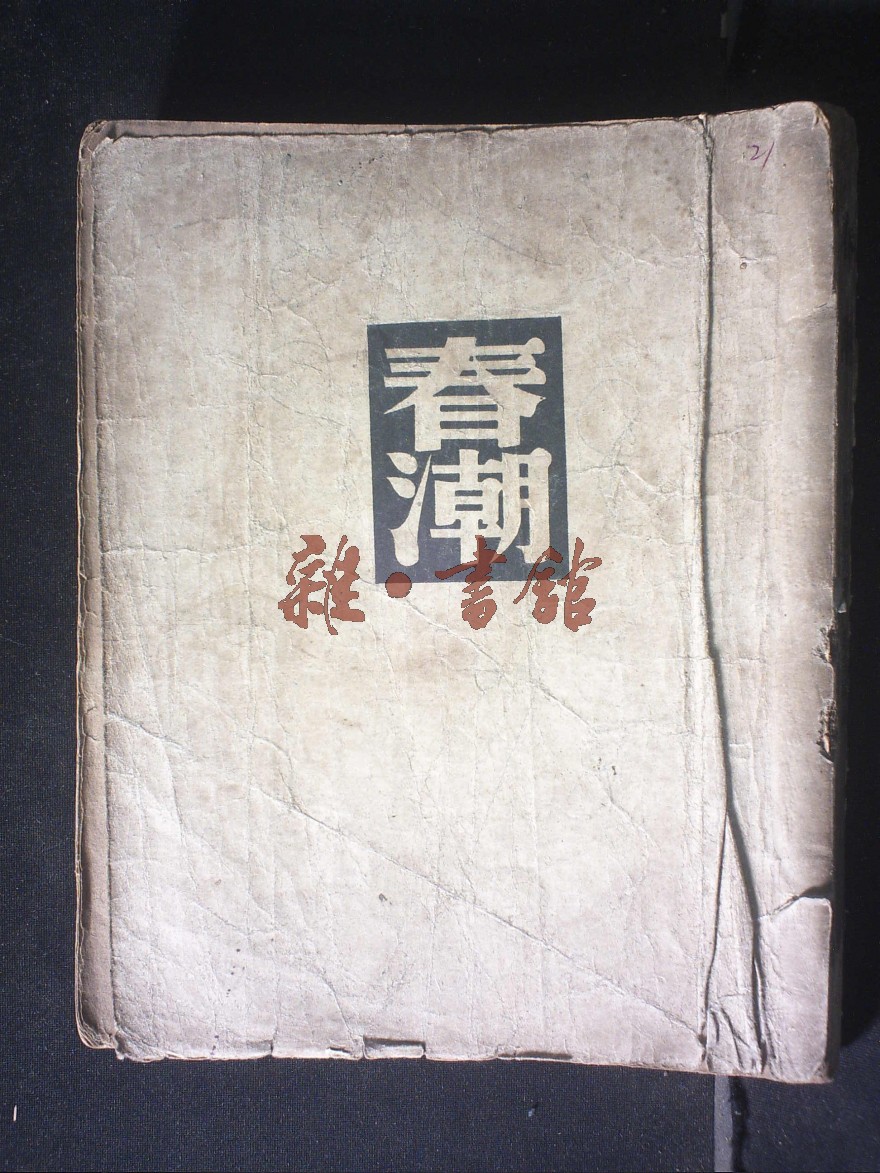 21
春
潮
雜·書館